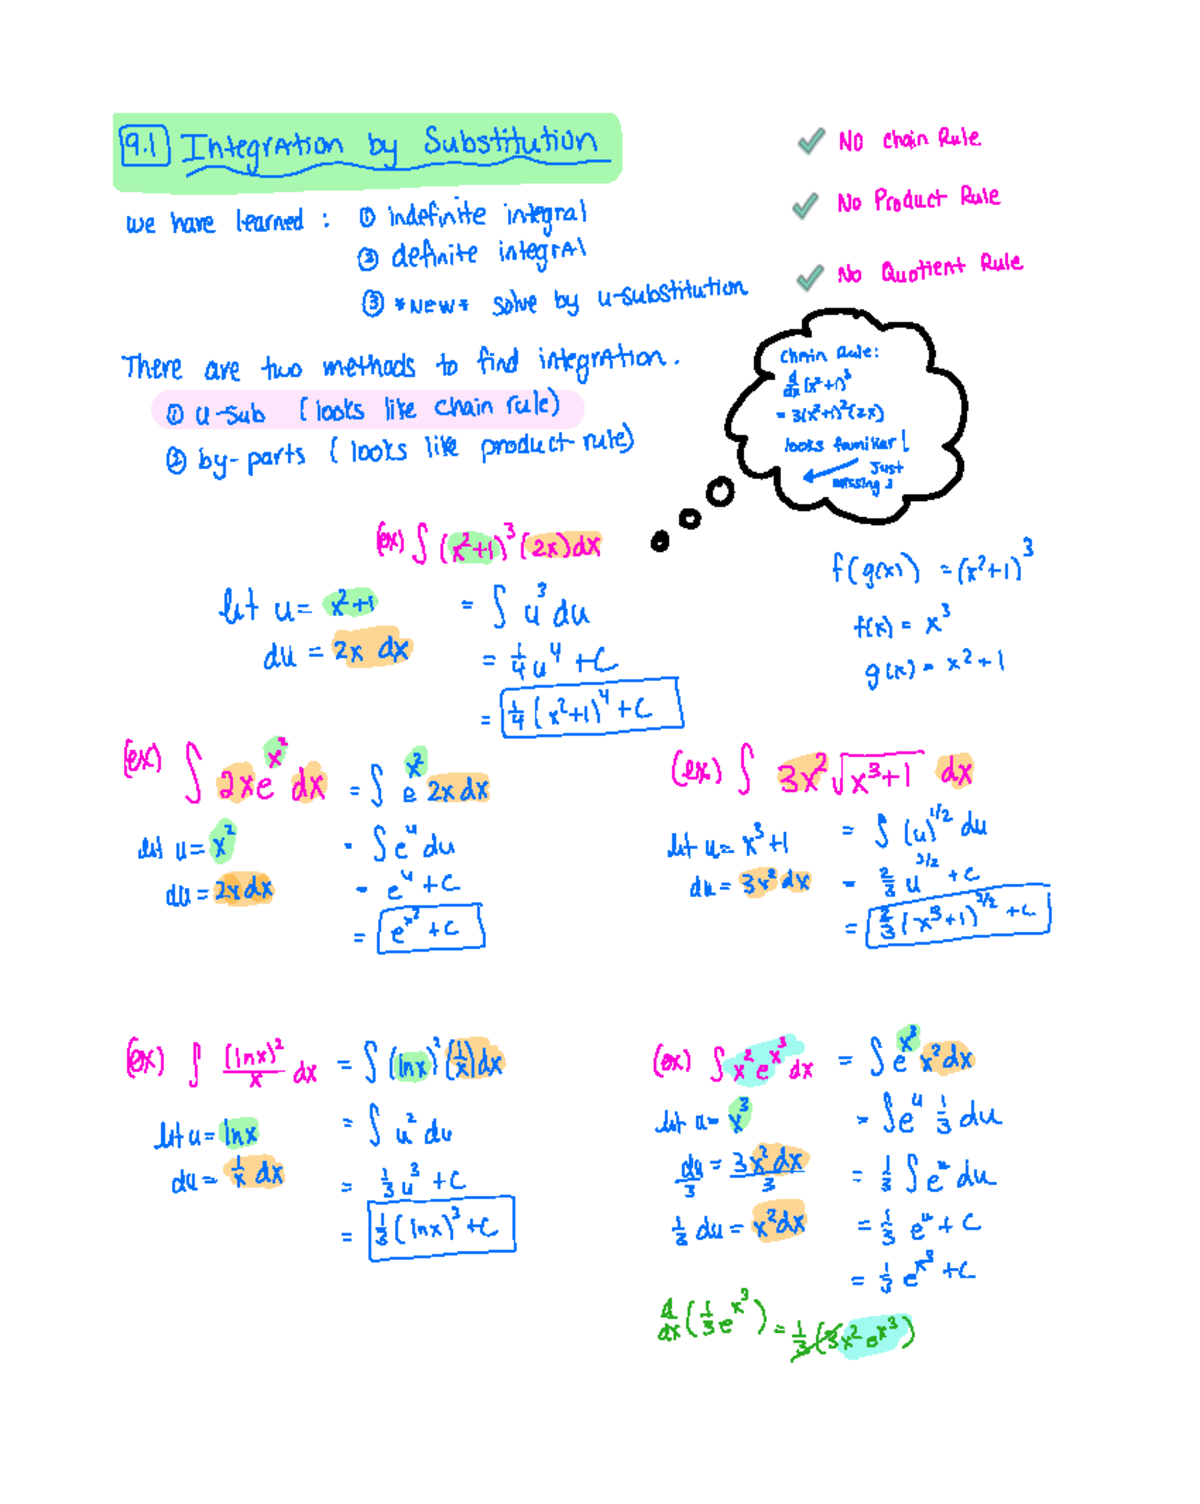 9.1 Integration by Substitution
✓ No Chain Rule
✓ No Product Rule
✓ No Quotient Rule
we have learned : ① indefinite integral
② definite integral
③ *NEW* solve by u-substitution
There are two methods to find integration.
① u-sub (looks like chain rule)
② by-parts (looks like product-rule)
Chain Rule:
d/dx (x²+1)³
= 3(x²+1)²(2x)
looks familiar!
Just
missing ∫
(ex) ∫ (x²+1)³ (2x) dx
let u = x²+1
du = 2x dx
= ∫ u³ du
= 1/4 u⁴ + C
= 1/4 (x²+1)⁴ + C
f(g(x)) = (x²+1)³
f(x) = x³
g(x) = x²+1
(ex) ∫ 2xe^x² dx = ∫ e^x² 2x dx
let u = x²
du = 2x dx
= ∫ e^u du
= e^u + C
= e^x² + C
(ex) ∫ 3x² √(x³+1) dx
let u = x³+1
du = 3x² dx
= ∫ (u)^1/2 du
= 2/3 u^3/2 + C
= 2/3 (x³+1)^3/2 + C
(ex) ∫ (lnx)²/x dx = ∫ (lnx)² (1/x) dx
let u = lnx
du = 1/x dx
= ∫ u² du
= 1/3 u³ + C
= 1/3 (lnx)³ + C
(ex) ∫ x² e^x³ dx = ∫ e^x³ x² dx
let u = x³
du/3 = 3x² dx/3
1/3 du = x² dx
= ∫ e^u 1/3 du
= 1/3 ∫ e^u du
= 1/3 e^u + C
= 1/3 e^x³ + C
d/dx (1/3 e^x³) = 1/3 (3x² e^x³)